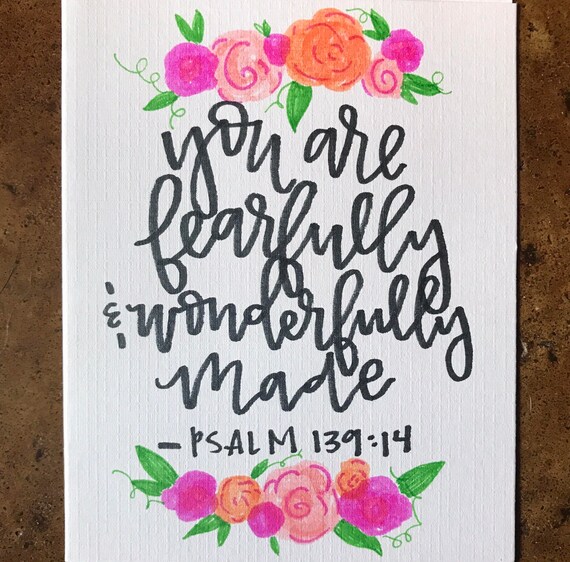 you are
fearfully
& wonderfully
made
- PSALM 139:14